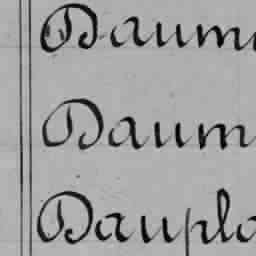 Daum
Daum
Dauplo